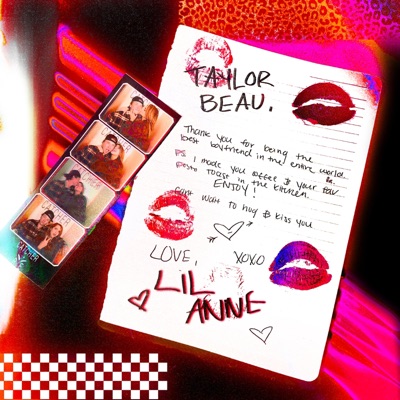 TAYLOR
BEAU.
Thank you for being the
best boyfriend in the entire world
PS I made you coffee & your fav
pesto toast in the kitchen
ENJOY!
Can't wait to hug & kiss you
LOVE, XOXO
LIL
ANNE